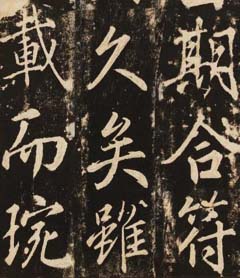 期合符
久矣雖
載而琬